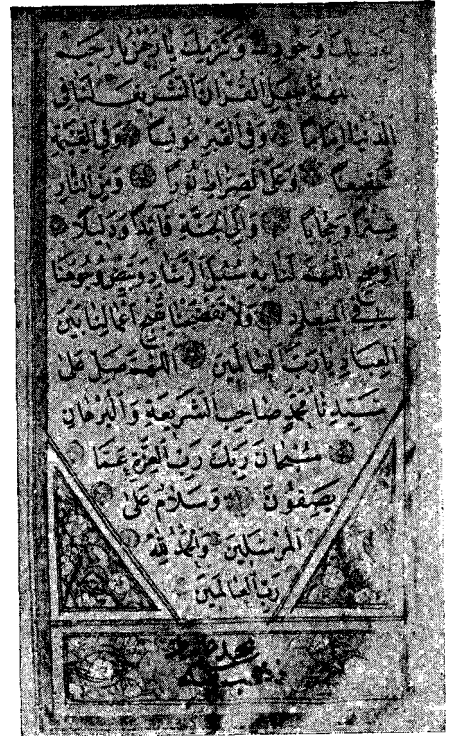 وجودك وكرمك يا رحمن يا رحيم
اللهم اجعل القران الشريف لنا في
الدنيا اماما وفي القبر مونسا وفي القيمة
شفيعا وعلى الصراط نورا ومن النار
سترا وحجابا والى الجنة قائدا ودليلا
اوضح اللهم لنا به سبيل الرشاد وبيض وجوهنا
في الميعاد ولا تفضحنا بقبح اعمالنا بين
العباد يا رب العالمين اللهم صل على
سيدنا محمد صاحب الشريعة والبرهان
سبحان ربك رب العزة عما
يصفون وسلام على
المرسلين والحمد لله
رب العالمين
محمد